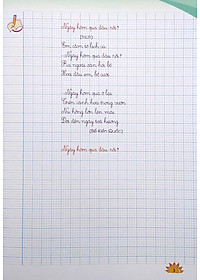 Ngày hôm qua đâu rồi?
(Trích)
Em cầm tờ lịch cũ:
- Ngày hôm qua đâu rồi?
Ra ngoài sân hỏi bố
Xoa đầu em, bố cười.
- Ngày hôm qua ở lại
Trên cành hoa trong vườn
Nụ hồng lớn lên mãi
Đợi đến ngày toả hương.
(Bế Kiến Quốc)
Ngày hôm qua đâu rồi?